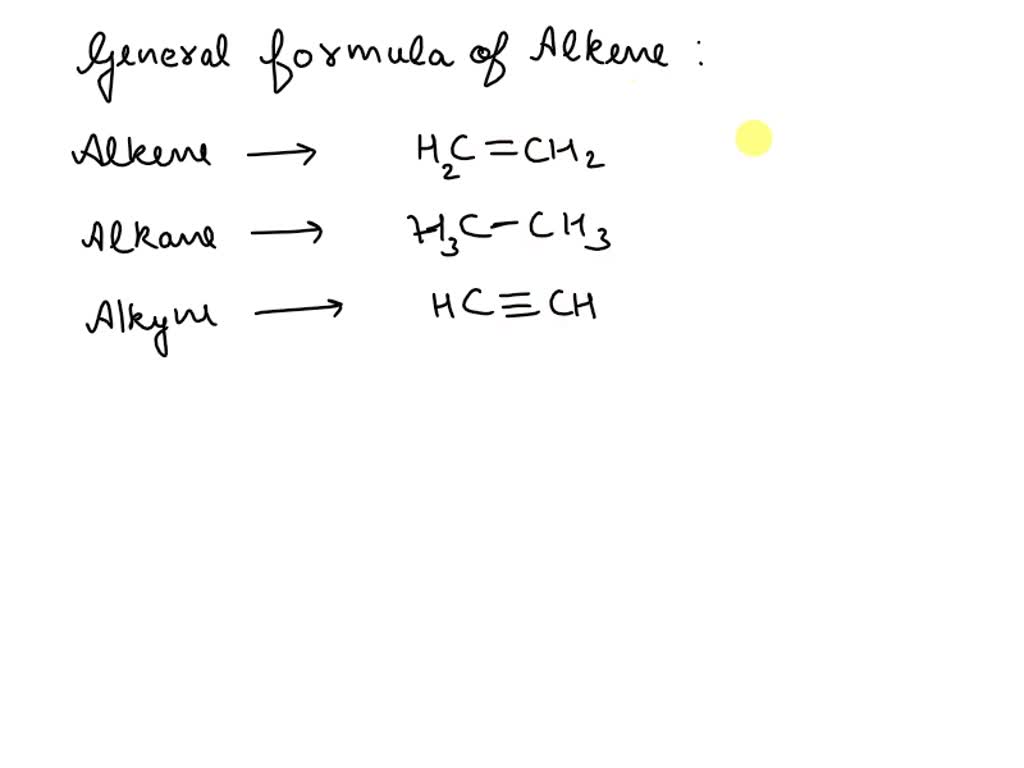 General formula of Alkene :
Alkene → H₂C=CH₂
Alkane → H₃C-CH₃
Alkyne → HC≡CH